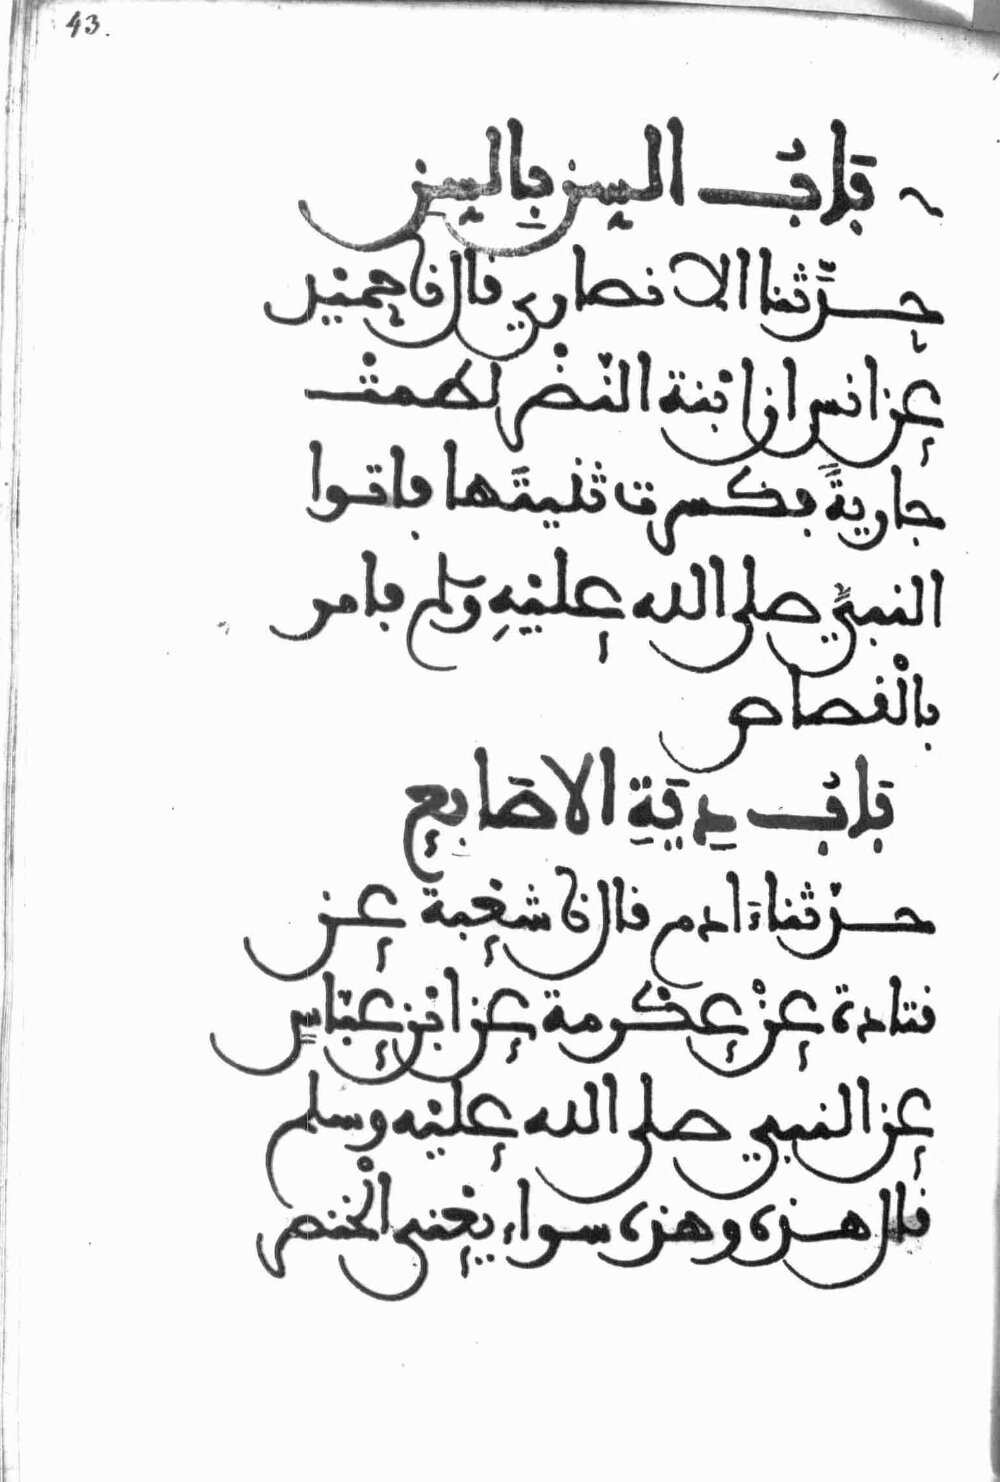 43.
بَابُ السِّن بِالسِّن
حدَّثنا الانصاري قال نا حميْد
عن انس ان ابْنة النّضْر لطمتْ
جاريةً فكسرت ثنيتَها فاتوا
النبيَّ صلى الله عليْهِ وسلم فامر
بالْقصاص
بَابُ دِيَةِ الاصَابِع
حدّثنا ءادم قال نا شعْبة عن
قتادة عنْ عكرمة عن ابْن عبّاسٍ
عن النبي صلى الله عليْه وسلم
قال هذه وهذه سواء يعْني الْخنصر